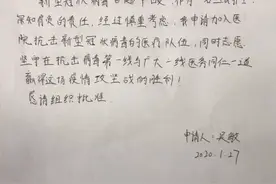 新型冠状病毒
深知肩负的责任，经过慎重考虑，我申请加入医
院抗击新型冠状病毒的医疗队伍，同时志愿
坚守在抗击病毒第一线与广大一线医务同仁一道
赢得这场疫情攻坚战的胜利！
恳请组织批准
申请人：吴敏
2020.1.27